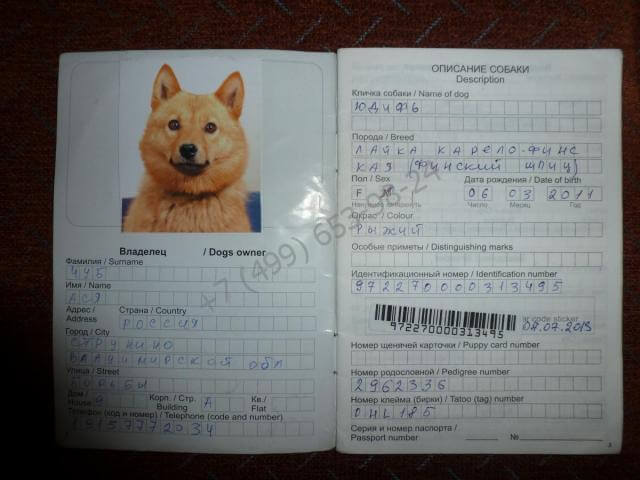 Владелец / Dogs owner
Фамилия / Surname
ЧУБ
Имя / Name
АСЯ
Адрес / Address
Страна / Country
РОССИЯ
Город / City
СТРУНИНО
ВЛАДИМИРСКОЙ ОБЛ
Улица / Street
Дом / House
9
Корп. / Стр. Building
А
Кв. / Flat
Телефон (код и номер) / Telephone (code and number)
19157772034
ОПИСАНИЕ СОБАКИ
Description
Кличка собаки / Name of dog
ЮДИФЬ
Порода / Breed
ЛАЙКА КАРЕЛО-ФИНС
КАЯ (ФИНСКИЙ ШПИЦ)
Пол / Sex
F M
Ненужное зачеркнуть
Дата рождения / Date of birth
06 03 2011
Число Месяц Год
Окрас / Colour
РЫЖИЙ
Особые приметы / Distinguishing marks
Идентификационный номер / Identification number
972270000313495
972270000313495
ar code sticker
04.07.2013
Номер щенячей карточки / Puppy card number
Номер родословной / Pedigree number
2962336
Номер клейма (бирки) / Tatoo (tag) number
OHL 185
Серия и номер паспорта /
Passport number № 
3
+7 (499) 653-93-24